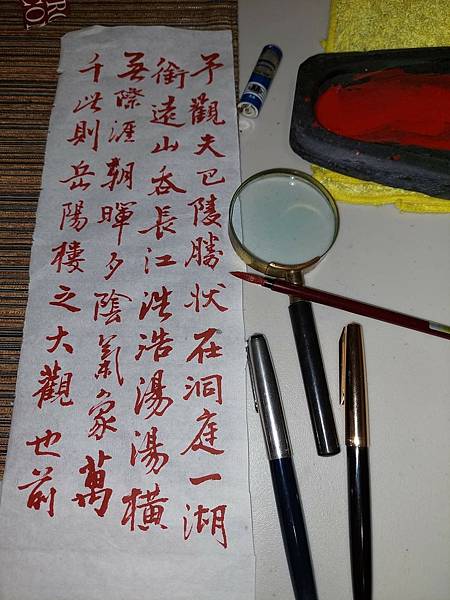 予觀夫巴陵勝狀在洞庭一湖
銜遠山吞長江浩浩湯湯橫
無際涯朝暉夕陰氣象萬
千此則岳陽樓之大觀也前